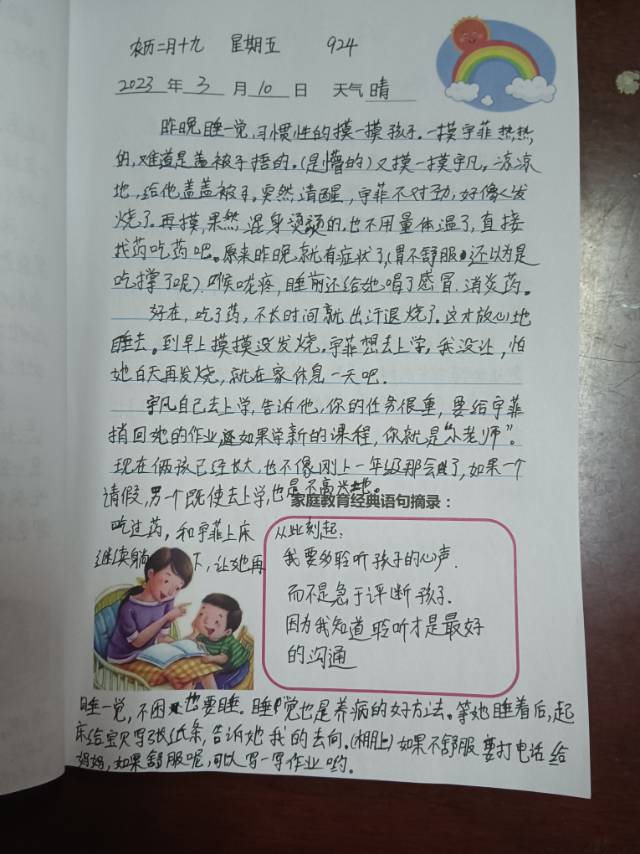 农历二月十九 星期五 924
2023 年 3 月 10 日 天气 晴
昨晚睡一觉,习惯性的摸一摸孩子。一摸宇菲热热
的,难道是盖被子捂的。(是懵的)又摸一摸宇凡,凉凉
地,给他盖盖被子,突然清醒,宇菲不对劲,好像发
烧了。再摸,果然浑身烫烫的,也不用量体温了,直接
找药吃药吧。原来昨晚就有症状了,(胃不舒服,还以为是
吃撑了呢)喉咙疼,睡前还给她喝了感冒、消炎药。
好在,吃了药,不长时间就出汗退烧了。这才放心地
睡去。到早上摸摸没发烧。宇菲想去上学,我没让,怕
她白天再发烧,就在家休息一天吧.
宇凡自己去上学,告诉他,你的任务很重,要给宇菲
捎回她的作业,如果学新的课程,你就是“小老师”。
现在俩孩已经长大,也不像刚上一年级那会了,如果一个
请假,另一个既使去上学,也是不高兴地。
家庭教育经典语句摘录:
吃过药,和宇菲上床
继续躺下,让她再
从此刻起:
我要多聆听孩子的心声.
而不是急于评断孩子.
因为我知道聆听才是最好
的沟通
睡一觉,不困也要睡.睡觉也是养病的好方法。等她睡着后,起
床给宝贝写张纸条,告诉她我的去向.(棚上)如果不舒服要打电话给
妈妈,如果舒服呢,可以写一写作业哟.